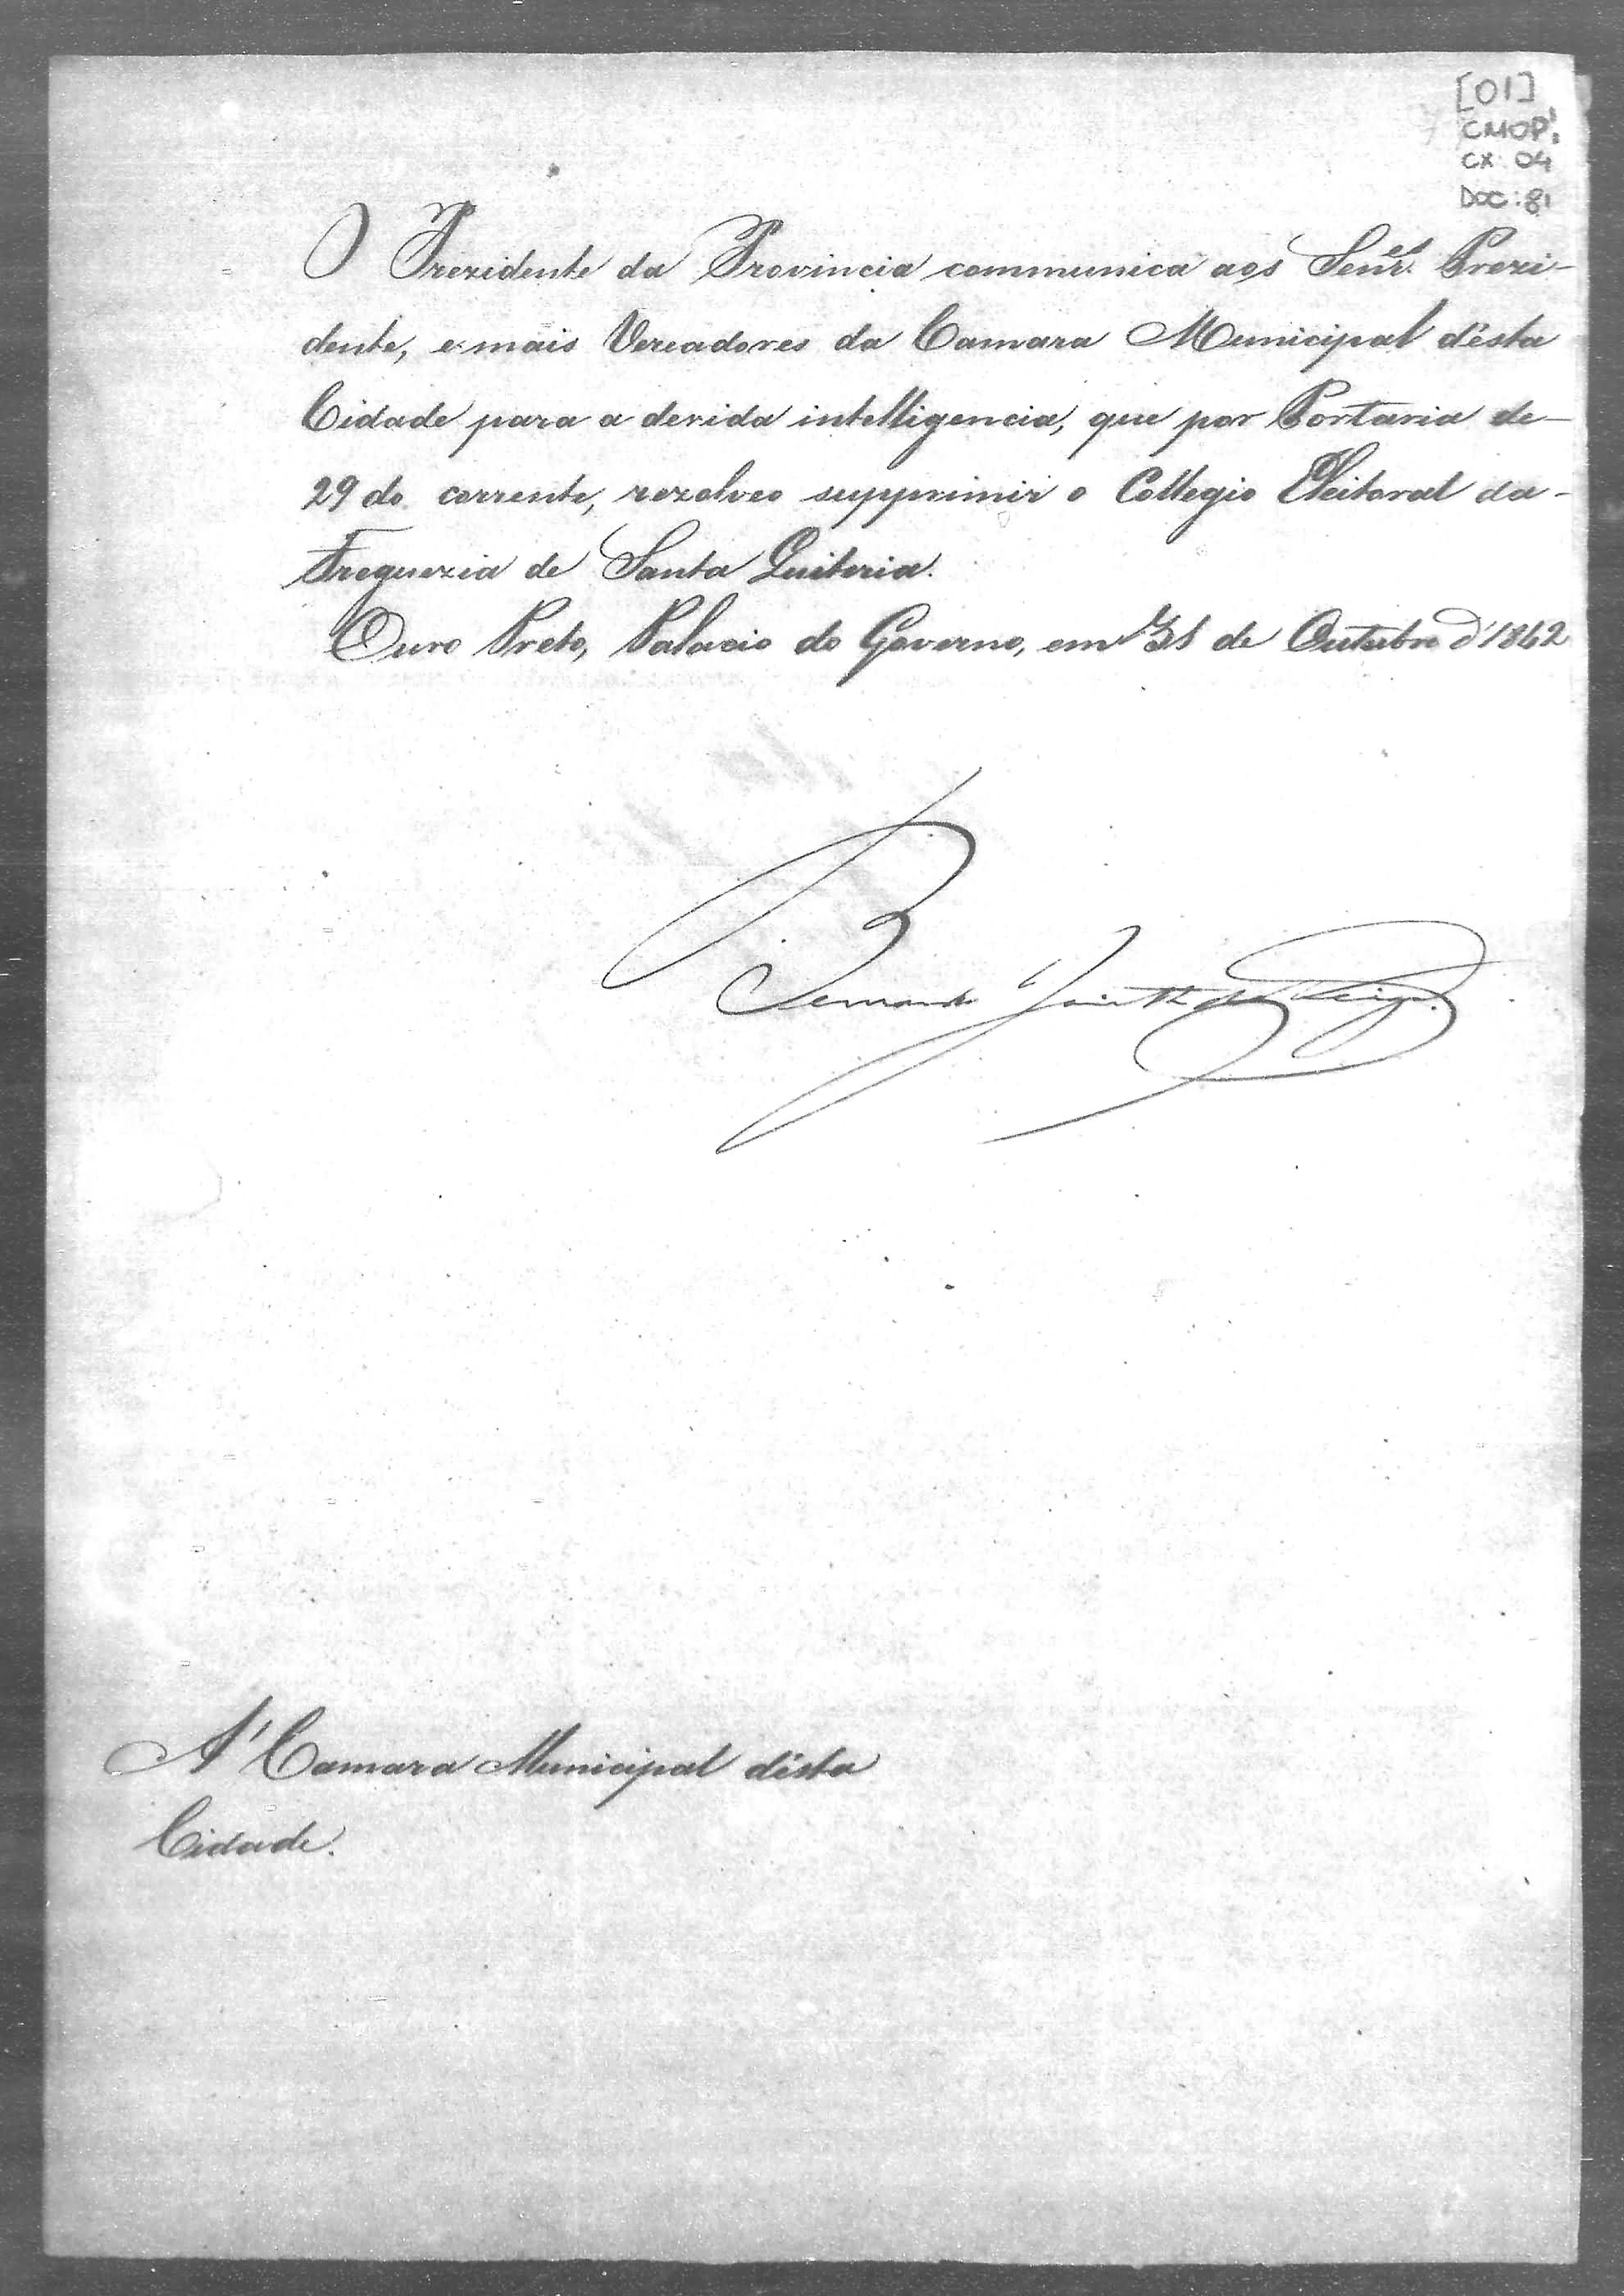 [01]
CMOP:
CX: 04
DOC: 81
O Prezidente da Provincia communica aos Senr.es Prezi-
dente, e mais Vereadores da Camara Municipal d'esta
Cidade para a devida intelligencia, que por Portaria de
29 do corrente, rezolveo supprimir o Collegio Eleitoral da
Freguezia de Santa Quiteria.
Ouro Preto, Palacio do Governo, em 31 de Outubro d'1842
Bernardo Jacintho da Veiga.
A' Camara Municipal d'esta
Cidade.